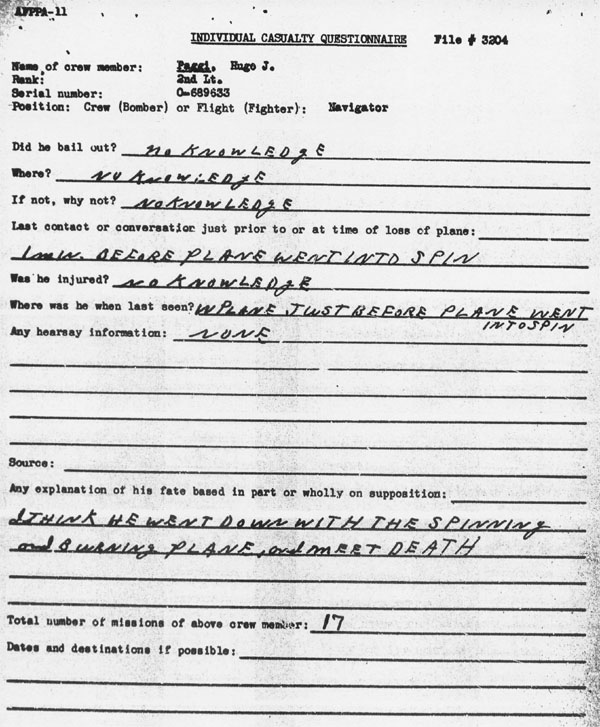 AFPPA-11
INDIVIDUAL CASUALTY QUESTIONNAIRE File # 3204
Name of crew member: Paggi, Hugo J.
Rank: 2nd Lt.
Serial number: O-689633
Position: Crew (Bomber) or Flight (Fighter): Navigator
Did he bail out? NO KNOWLEDGE
Where? NO KNOWLEDGE
If not, why not? NO KNOWLEDGE
Last contact or conversation just prior to or at time of loss of plane:
1 MIN. BEFORE PLANE WENT INTO SPIN
Was he injured? NO KNOWLEDGE
Where was he when last seen? IN PLANE JUST BEFORE PLANE WENT
INTO SPIN
Any hearsay information: NONE
Source:
Any explanation of his fate based in part or wholly on supposition:
I THINK HE WENT DOWN WITH THE SPINNING
and BURNING PLANE, and MEET DEATH
Total number of missions of above crew member: 17
Dates and destinations if possible: